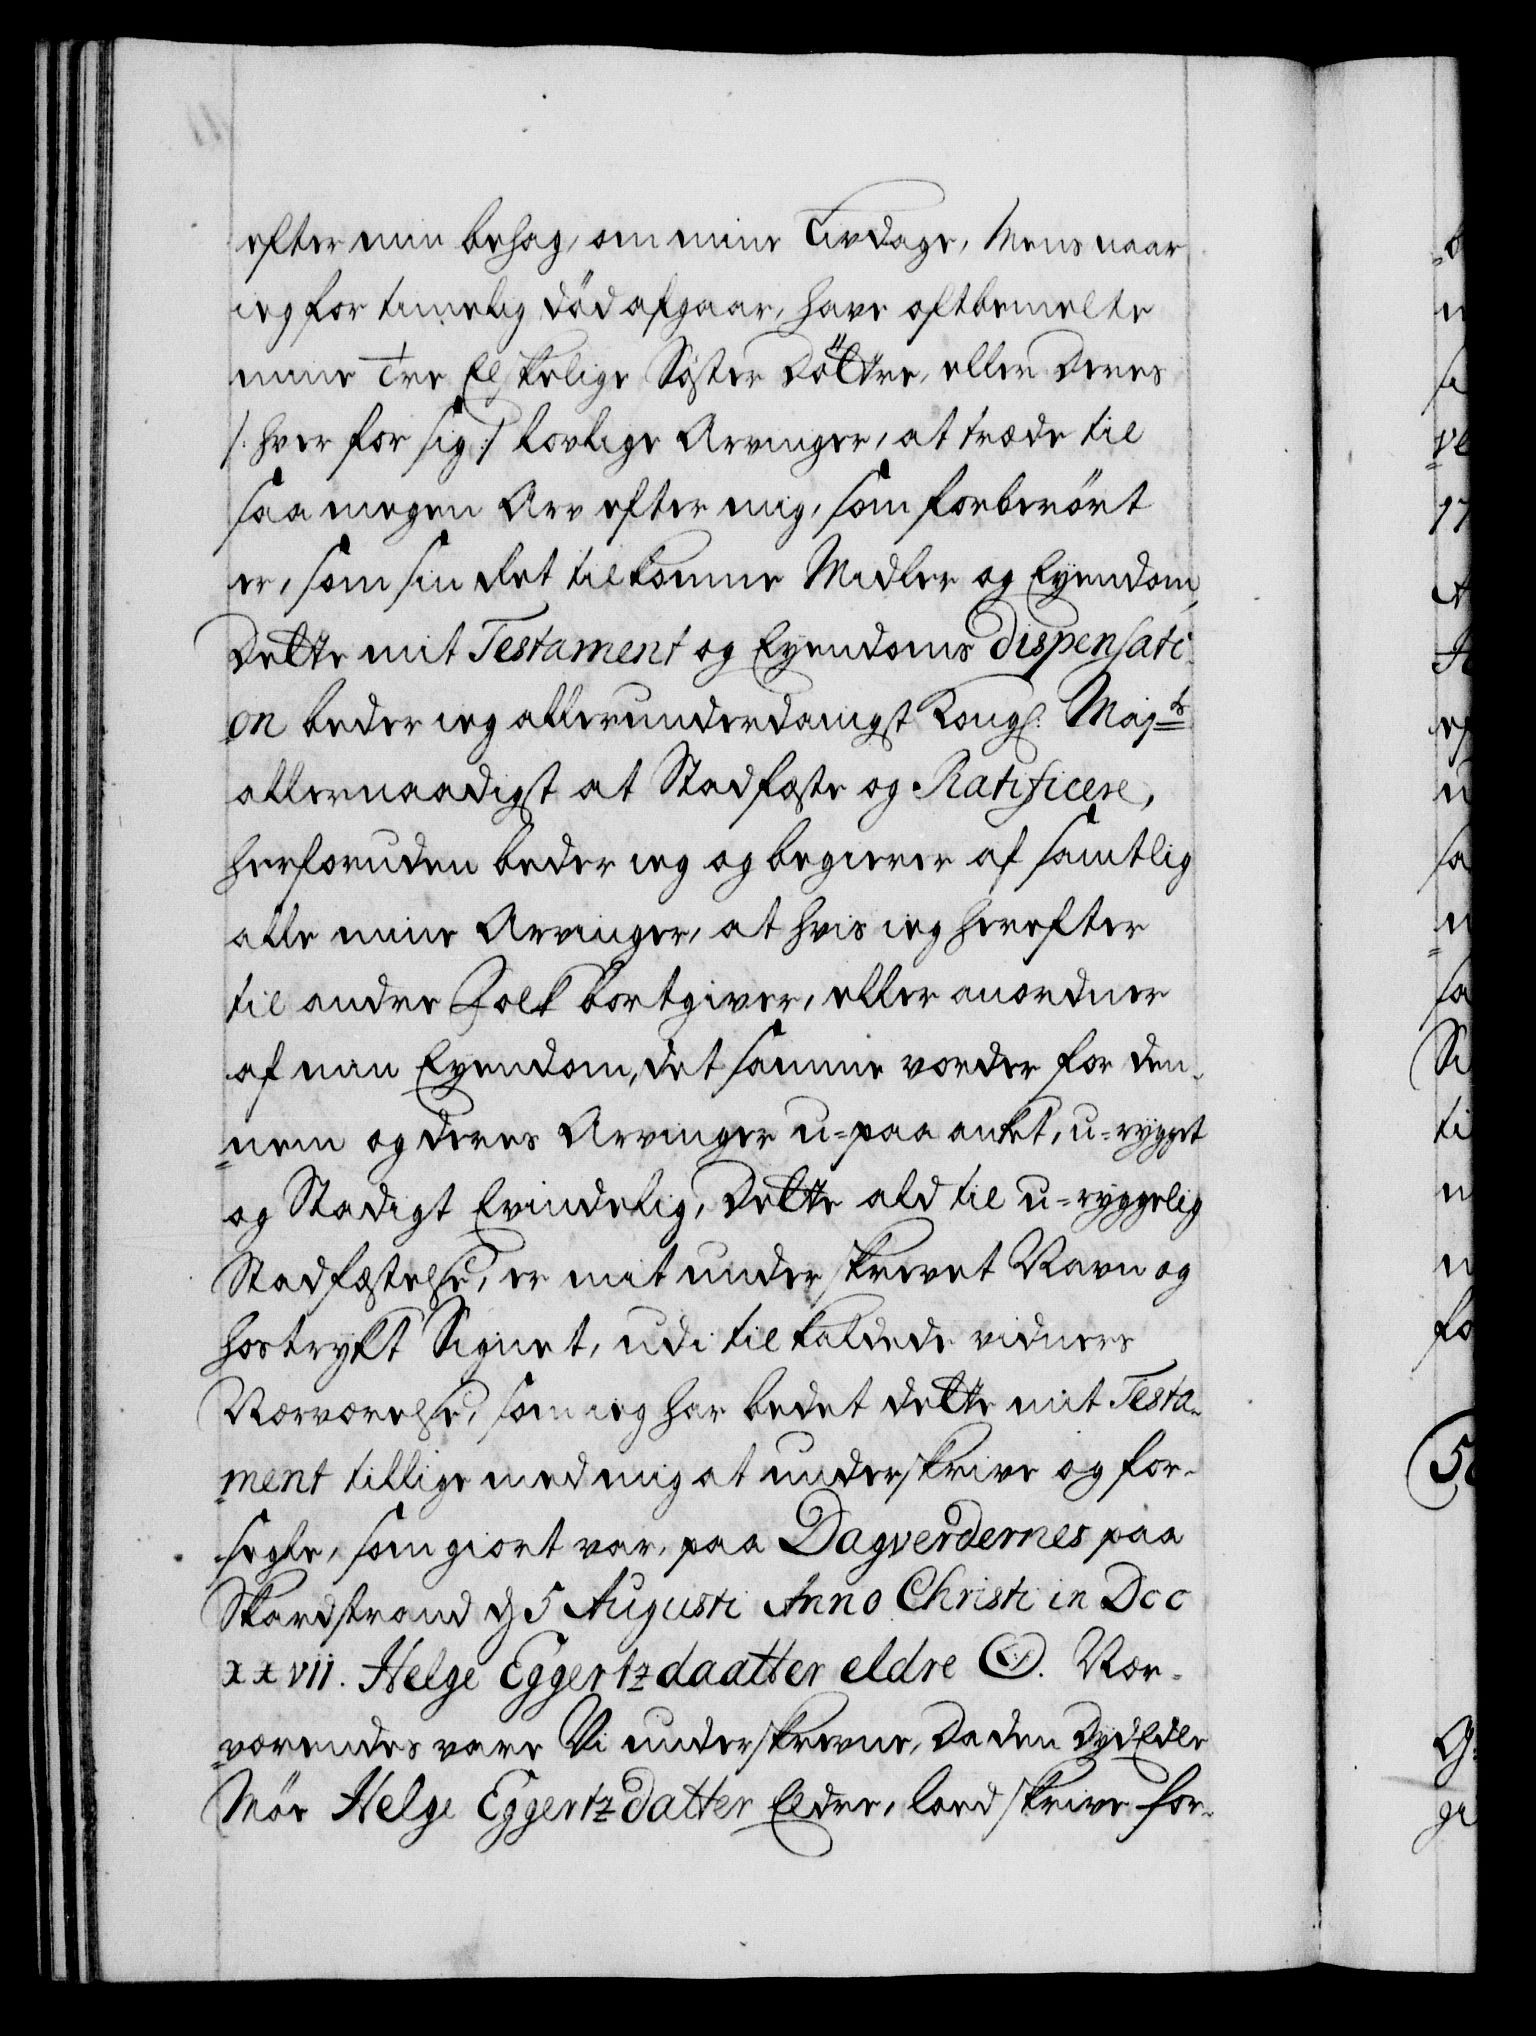 efter min behag, om mine Livdage, Mens naar
ieg for timelig død afgaar, have oftbemelte
mine Tre Elskelige Søster Døttre, eller deres
/: hver for sig :/ lovlige Arvinger, at træde til
saa megen Arv efter mig, som forberørt
er, som sin det tilkomme Midler og Eyendom,
Dette mit Testament og Eyendoms dispensati-
on beder ieg allerunderdanigst Kongl. Majts
allernaadigst at Stadfæste og Ratificere,
herforuden beder ieg og begierer af samtlig
alle mine Arvinger, at hvis ieg herefter
til andre Folk bortgiver, eller anordner
af min Eyendom, det samme vorder for den-
nem og deres Arvinger u-paa anket, u-rygget
og Stadigt Evindelig, Dette ald til u-ryggelig
Stadfæstelse, er mit under skrevet Navn og
hostrykt Signet, udi tilkaldede vidners
Nærværelse, som ieg har bedet dette mit Testa-
ment tillige med mig at underskrive og for-
segle, som giort var, paa Dagverdernes paa
Skardstrand d 5 Augusti Anno Christi in Dcc
xxvii. Helge Eggertzdaatter eldre. Nær-
værendes vare Vi underskrevne, Da den DydEdle
Møe Helge Eggertzdatter Eldre, loed skrive for-